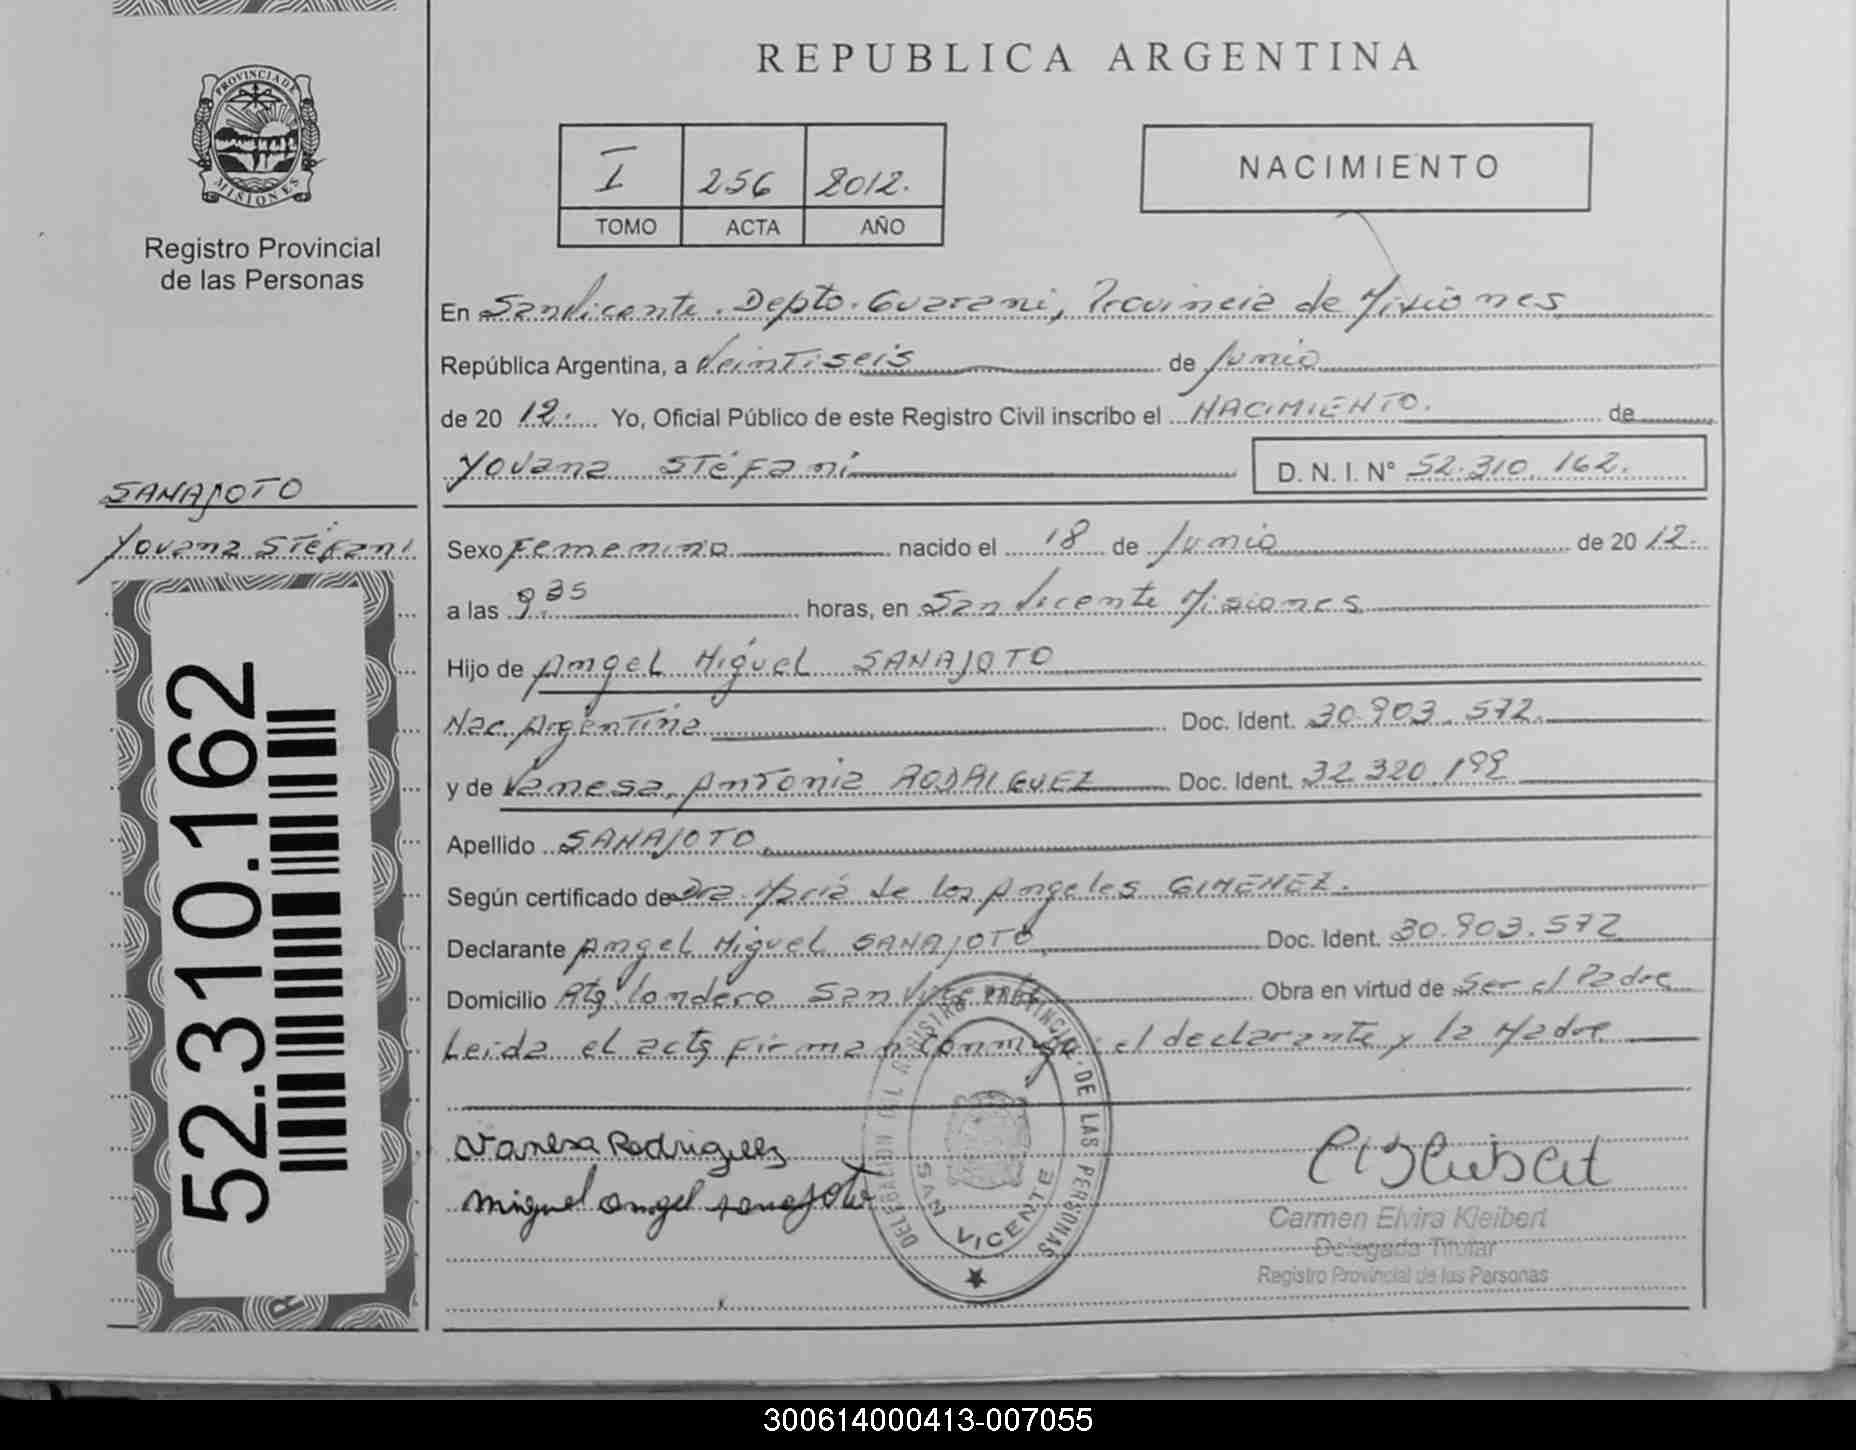 PROVINCIA DE
MISIONES
Registro Provincial
de las Personas
SANAJOTO
Yovana Stéfani
52.310.162
REPUBLICA ARGENTINA
I 256 2012.
TOMO ACTA AÑO
NACIMIENTO
En San Vicente. Depto. Guarani, Provincia de Misiones
República Argentina, a Veintiseis de Junio
de 20 12. Yo, Oficial Público de este Registro Civil inscribo el NACIMIENTO. de
Yovana Stéfani D. N. I. N° 52.310.162.
Sexo Femenino nacido el 18 de Junio de 20 12.
a las 9.35 horas, en San Vicente Misiones
Hijo de Angel Miguel SANAJOTO
Nac. Argentina Doc. Ident. 30.903.572.
y de Vanesa Antonia RODRIGUEZ Doc. Ident. 32.320.199
Apellido SANAJOTO.
Según certificado de Dra. Maria de los Angeles GIMENEZ.
Declarante Angel Miguel SANAJOTO. Doc. Ident. 30.903.572
Domicilio San Vicente Obra en virtud de Ser el Padre
Leida el acta Firman conmigo el declarante y la Madre
Vanesa Rodriguez
Miguel Angel Sanajoto
DELEGACION DEL REGISTRO PROVINCIAL DE LAS PERSONAS
SAN VICENTE
Carmen Elvira Kleibert
Delegada Titular
Registro Provincial de las Personas
300614000413-007055